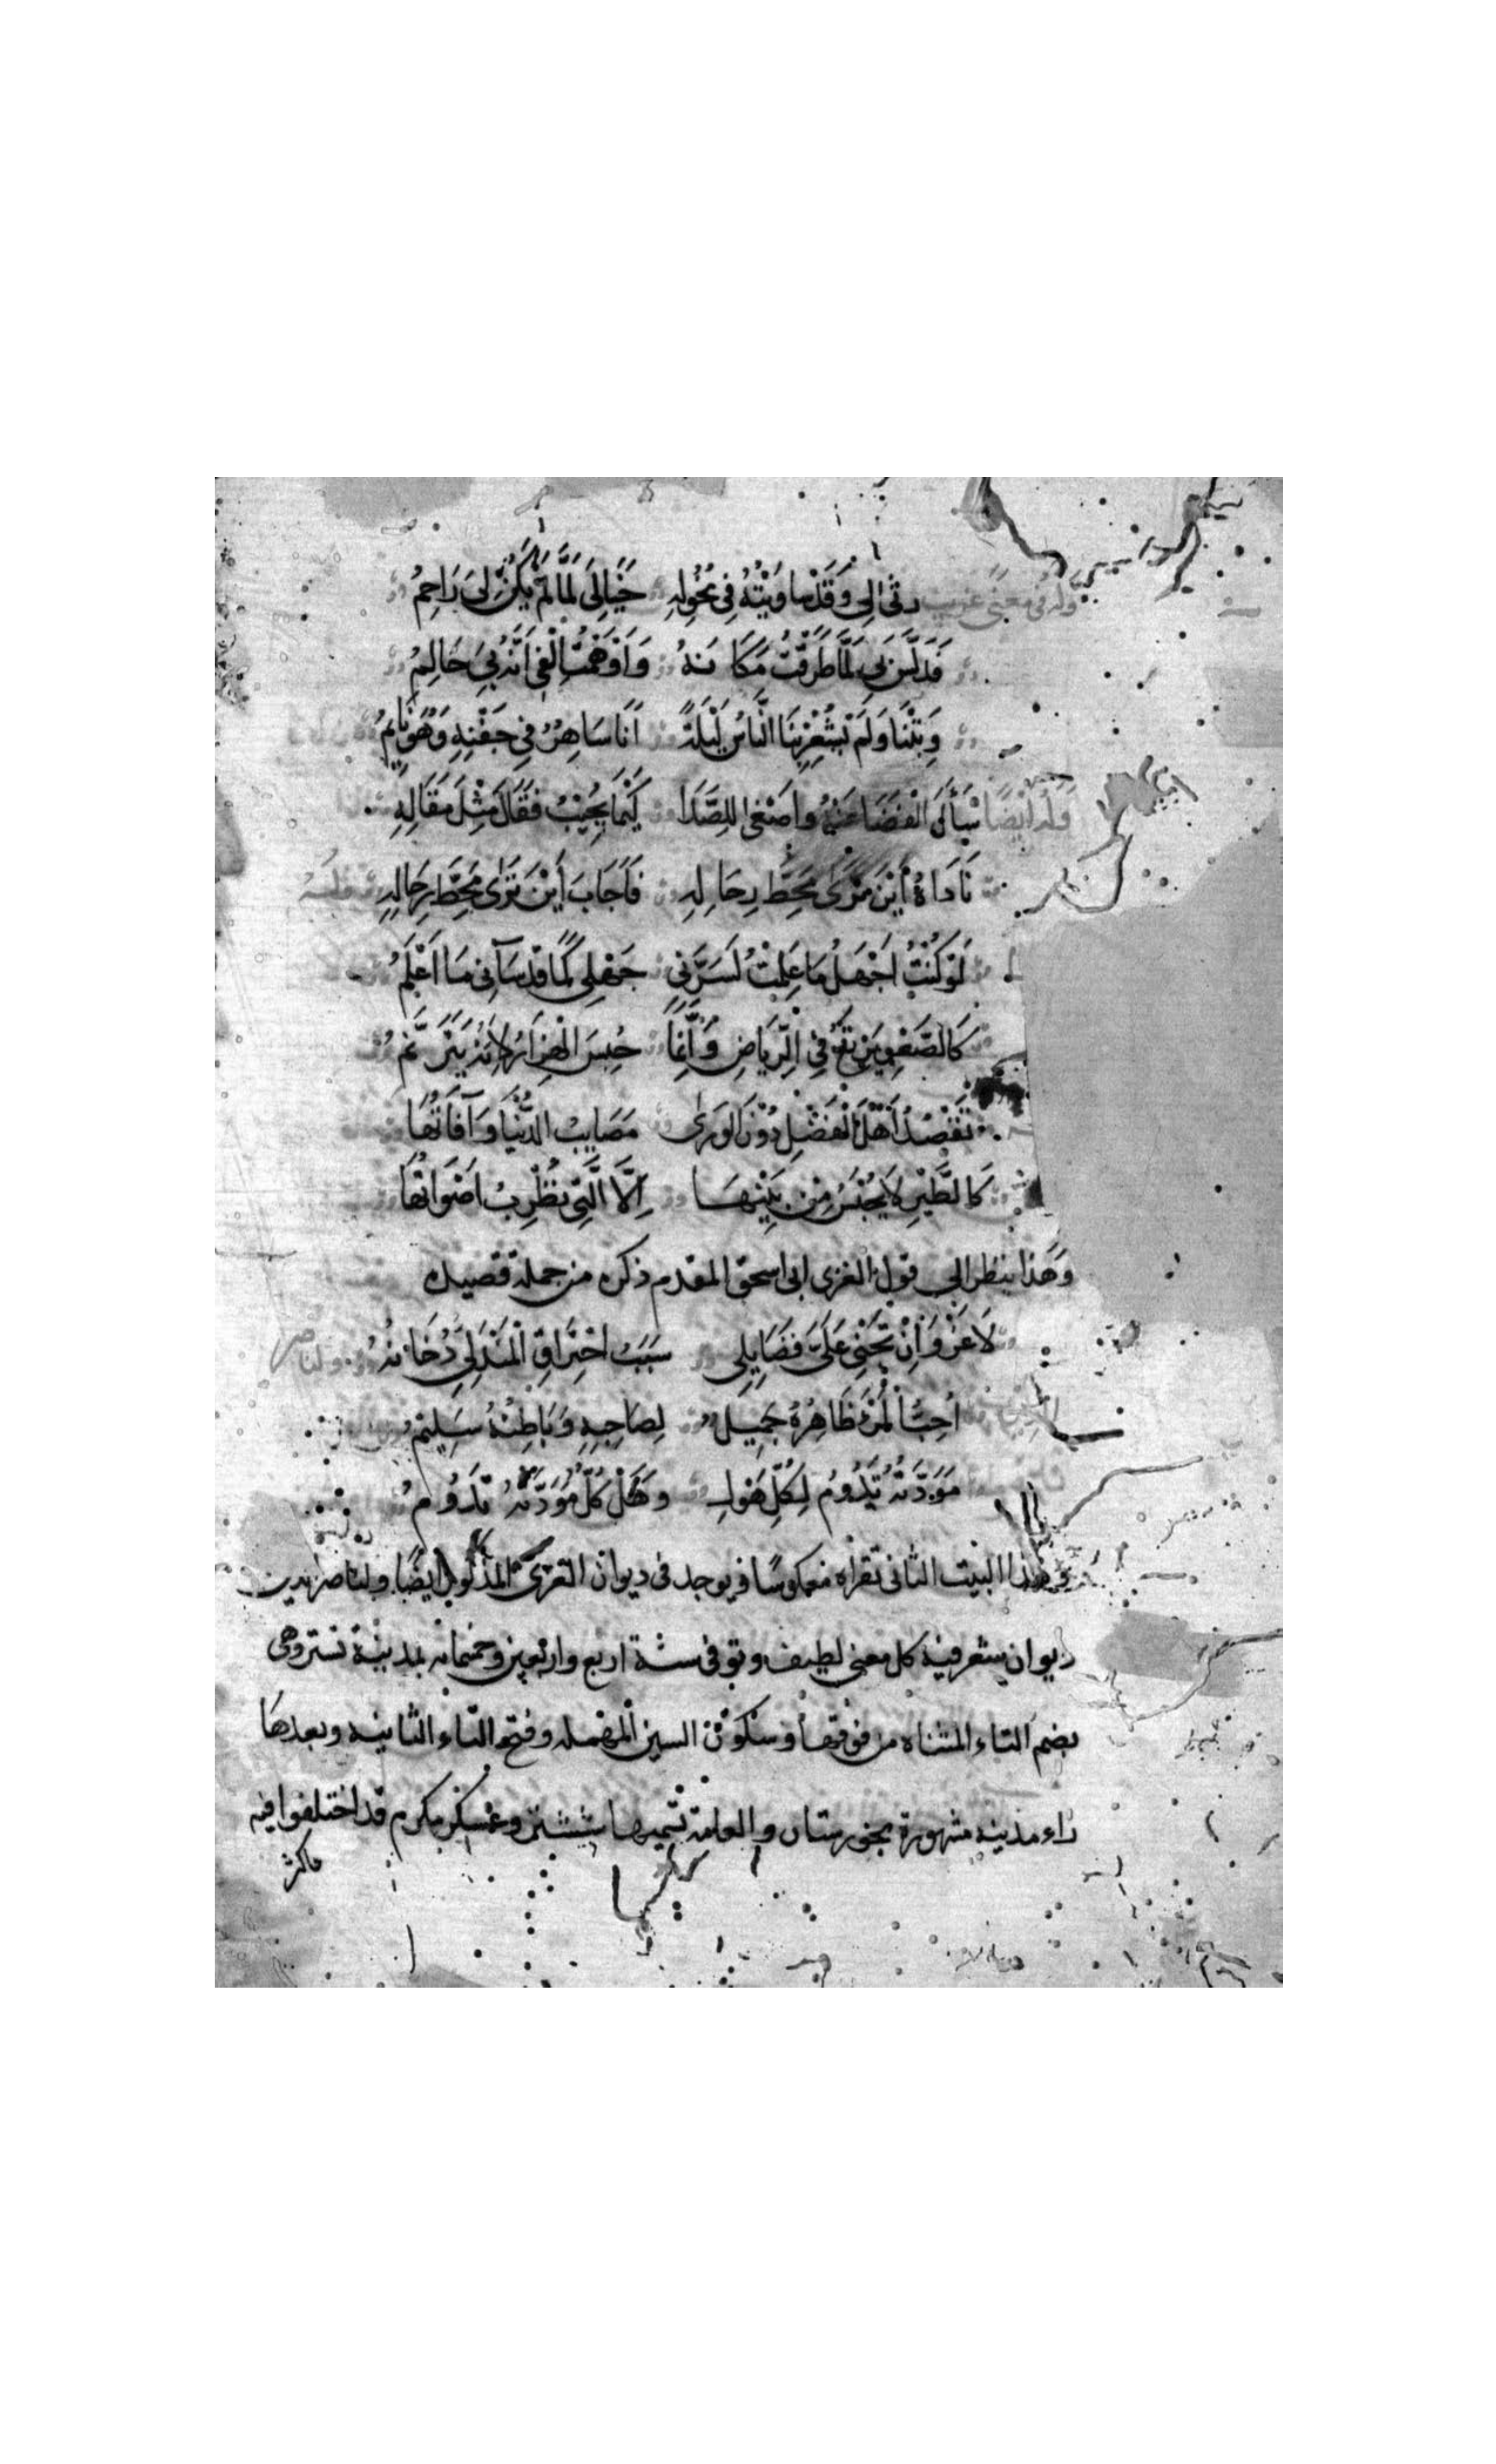 وله في معنى غريب رثى لي وقد ساويته في نحوله خيالي لما لم يكن لي راحم
فدلس بي لما طرقت مكانه وأوهمت إلفي أنه بي حالم
وبتنا ولم يشعر بنا الناس ليلة أنا ساهر في جفنه وهو نائم
وله أيضا سأل الفضا عنه وأصغى للصدا كيما يجيب فقال مثل مقاله
ناداه أين ترى محط رحاله فأجاب أين ترى محط رحاله وله
لو كنت أجهل ما علمت لسرني جهلي كما قد ساءني ما أعلم
كالصعو يرتع في الرياض وإنما حبس الهزار لأنه يترنم
تقصد أهل الفضل دون الورى مصايب الدنيا وآفاتها
كالطير لا يحبس من بينها إلا التي تطرب أصواتها
وهذا ينظر إلى قول الغزي ابي اسحق المقدم ذكره من جملة قصيدة
لا غرو أن تجني علي فضايلي سبب احتراق المندلي دخانه
أحب المرء ظاهره جميل لصاحبه وباطنه سليم
مودته تدوم لكل هول وهل كل مودته تدوم
وهذا البيت الثاني تقراه معكوسا ويوجد في ديوان الغزي المذكور ايضا ولناصح الدين
ديوان شعر فيه كل معنى لطيف وتوفي سنة اربع واربعين وخمسمائة بمدينة تستر وهي
بضم التاء المثناة من فوقها وسكون السين المهملة وفتح التاء الثانية وبعدها
راء مدينة مشهورة بخوزستان والعامة تسميها ششتر وعسكر مكرم قد اختلفوا فيه
فاكثر